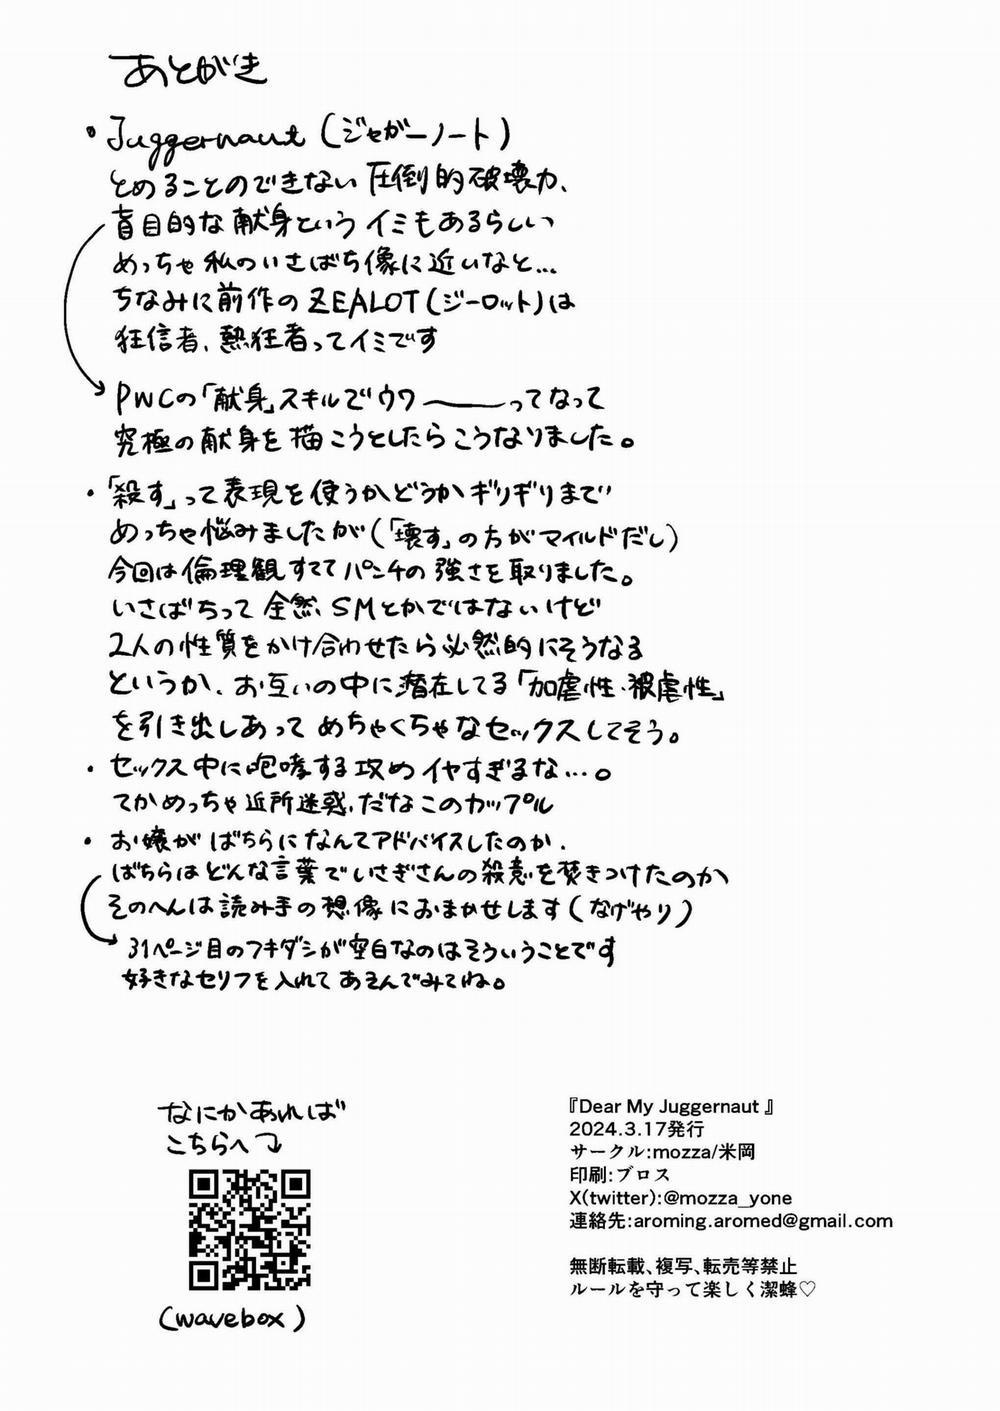 あとがき
・Juggernaut(ジャガーノート)
とめることのできない圧倒的破壊力、
盲目的な献身というイミもあるらしい
めっちゃ私のいさばち像に近いなと…
ちなみに前作のZEALOT(ジーロット)は
狂信者、熱狂者ってイミです
PWCの「献身」スキルでウワーーってなって
究極の献身を描こうとしたらこうなりました。
・「殺す」って表現を使うかどうかギリギリまで
めっちゃ悩みましたが(「壊す」の方がマイルドだし)
今回は倫理観すててパンチの強さを取りました。
いさばちって全然SMとかではないけど
2人の性質をかけ合わせたら必然的にそうなる
というか、お互いの中に潜在してる「加虐性・被虐性」
を引き出しあってめちゃくちゃなセックスしてそう。
・セックス中に咆哮する攻めイヤすぎるな…。
てかめっちゃ近所迷惑だなこのカップル
・お嬢がばちらになんてアドバイスしたのか、
ばちらはどんな言葉でいさぎさんの殺意を焚きつけたのか
そのへんは読み手の想像におまかせします(なげやり)
31ページ目のフキダシが空白なのはそういうことです
好きなセリフを入れてあそんでみてね。
なにかあれば
こちらへ
(wavebox)
『Dear My Juggernaut 』
2024.3.17発行
サークル:mozza/米岡
印刷:ブロス
X(twitter):@mozza_yone
連絡先:aroming.aromed@gmail.com
無断転載、複写、転売等禁止
ルールを守って楽しく潔蜂♡